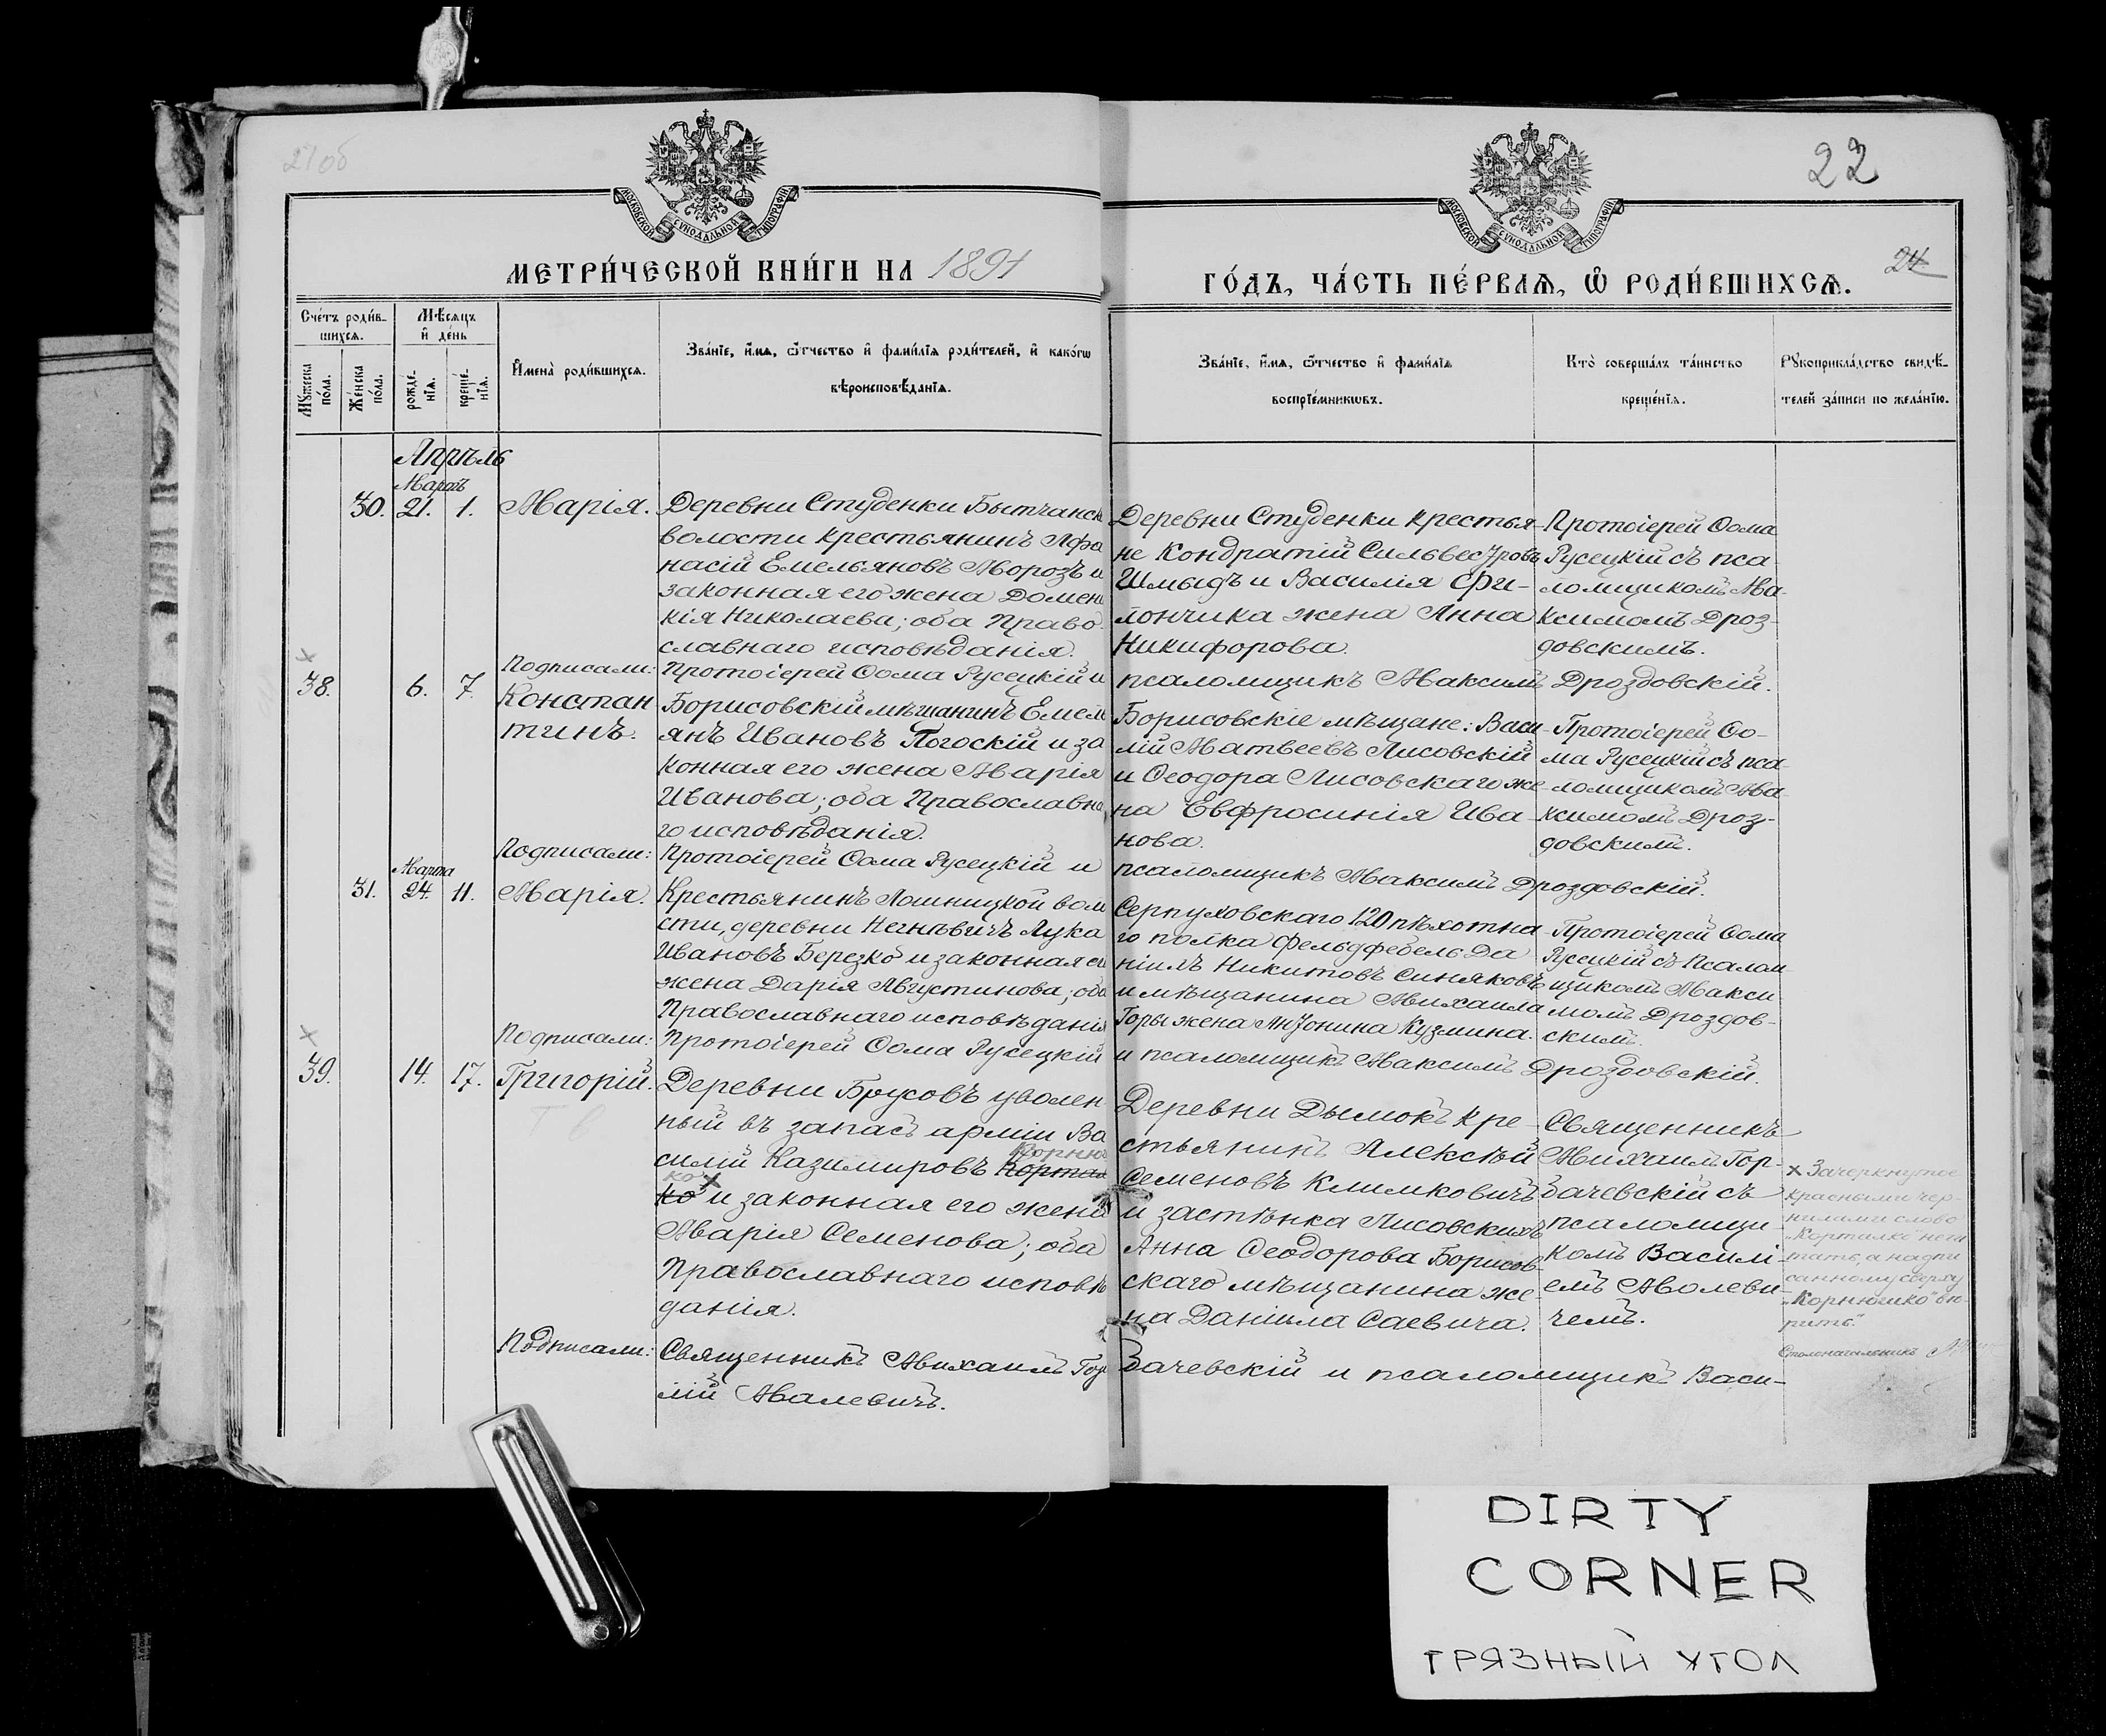 21об
22
МОСКОВСКОЙ СѴНОДАЛЬНОЙ ТИПОГРАФІИ
МОСКОВСКОЙ СѴНОДАЛЬНОЙ ТИПОГРАФІИ
МЕТРИ́ЧЕСКОЙ КНИ́ГИ НА 1891
ГО́ДЪ, ЧА́СТЬ ПЕ́РВАѦ, Ѽ РОДИ́ВШИХСѦ.
24
Сче́тъ роди́в-
шихсѧ.
Мѣ́сѧцъ
и҆ де́нь
Мꙋ́жеска
по́ла.
Же́нска
по́ла.
рожде́-
нїѧ.
креще́-
нїѧ.
И҆мена̀ роди́вшихсѧ.
Зва́нїе, и҆́мѧ, ѻ҆́тчество и҆ фами́лїѧ роди́телей, и҆ како́гѡ
вѣроисповѣ́данїѧ.
Зва́нїе, и҆́мѧ, ѻ҆́тчество и҆ фами́лїѧ
воспрїе́мникѡвъ.
Кто̀ соверша́лъ та́инство
креще́нїѧ.
Рꙋкоприкла́дство свидѣ́-
телей за́писи по жела́нїю.
Апрѣль
Мартъ
30. 21. 1. Марія. Деревни Студенки Бытчанск
волости крестьянинъ Афа
насій Емельяновъ Морозъ и
законная его жена Домни
кія Николаева; оба Право-
славнаго исповѣданія.
Деревни Студенки крестья-
не Кондратій Сильвестровъ
Шмыдъ и Василія Фи-
лончика жена Анна
Никифорова.
Протоіерей Ѳома
Русецкій съ пса-
ломщикомъ Ма-
ксимомъ Дроз-
довскимъ.
Подписали: Протоіерей Ѳома Русецкій и псаломщикъ Максимъ Дроздовскій.
38. 6. 7. Констан
тинъ.
Борисовскій мѣщанинъ Емель
янъ Ивановъ Погоскій и за
конная его жена Марія
Иванова; оба Православна
го исповѣданія.
Борисовскіе мѣщане: Васи-
лій Матвеевъ Лисовскій
и Ѳеодора Лисовскаго же
на Евфросинія Ива-
нова.
Протоіерей Ѳо-
ма Русецкій съ пса-
ломщикомъ Ма-
ксимомъ Дроз-
довскимъ.
Подписали: Протоіерей Ѳома Русецкій и псаломщикъ Максимъ Дроздовскій.
Марта
31. 24. 11. Марія. Крестьянинъ Лошницкой воло
сти, деревни Негновичъ Лука
Ивановъ Березко и законная его
жена Дарія Августинова; оба
Православнаго исповѣданія
Серпуховскаго 120 пѣхотна
го полка фельдфебель Да
ніилъ Никитовъ Синяковъ
и мѣщанина Михаила
Горы жена Антонина Кузмина.
Протоіерей Ѳома
Русецкій съ Псалом
щикомъ Макси
момъ Дроздов-
скимъ.
Подписали: Протоіерей Ѳома Русецкій и псаломщикъ Максимъ Дроздовскій.
39. 14. 17. Григорій. Деревни Брусовъ уволен
ный въ запасъ арміи Ва
силій Казимировъ Корта
ко и законная его жена
Марія Семенова; оба
Православнаго исповѣ
данія.
Деревни Дымокъ кре-
стьянинъ Алексѣй
Семеновъ Климковичъ
и застѣнка Лисовскихъ
Анна Ѳеодорова Борисов-
скаго мѣщанина же-
на Даніила Саевича.
Священникъ
Михаилъ Гор-
бачевскій съ
псаломщи-
комъ Василі-
емъ Молеви-
чемъ.
х Зачеркнутое
красными чер-
нилами слово
„Корталко“ не чи
тать, а надпи
санному сверху
„Корнюшко“ вѣ-
рить.“
Столоначальникъ
Подписали: Священникъ Михаилъ Гор бачевскій и псаломщикъ Васи-
лій Малевичъ.
DIRTY
CORNER
ГРЯЗНЫЙ УГОЛ